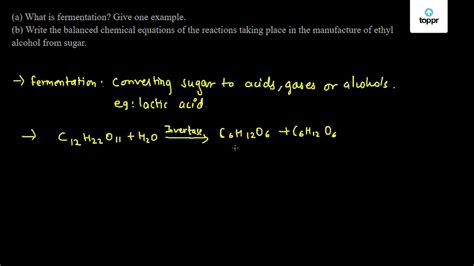 (a) What is fermentation? Give one example.
(b) Write the balanced chemical equations of the reactions taking place in the manufacture of ethyl
alcohol from sugar.
toppr
→ fermentation: Converting sugar to acids, gases or alohols.
eg: lactic acid.
→ C₁₂H₂₂O₁₁ + H₂O Invertase→ C₆H₁₂O₆ + C₆H₁₂O₆